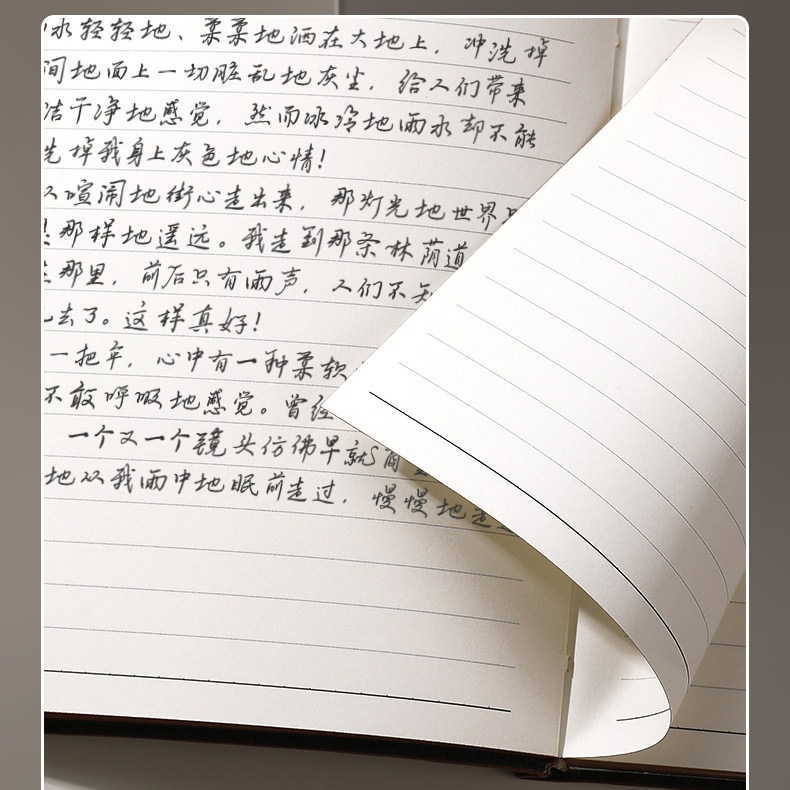 水轻轻地、柔柔地洒在大地上，冲洗掉
间地面上一切脏乱地灰尘，给人们带来
洁干净地感觉，然而冰冷地雨水却不能
洗掉我身上灰色地心情！
从喧闹地街心走出来，那灯光地世界
那样地遥远。我走到那条林荫道
在那里，前后只有雨声，人们不知
去了。这样真好！
一把伞，心中有一种柔软
不敢呼吸地感觉。曾经
一个又一个镜头仿佛早就
地从我雨中地眼前走过，慢慢地走